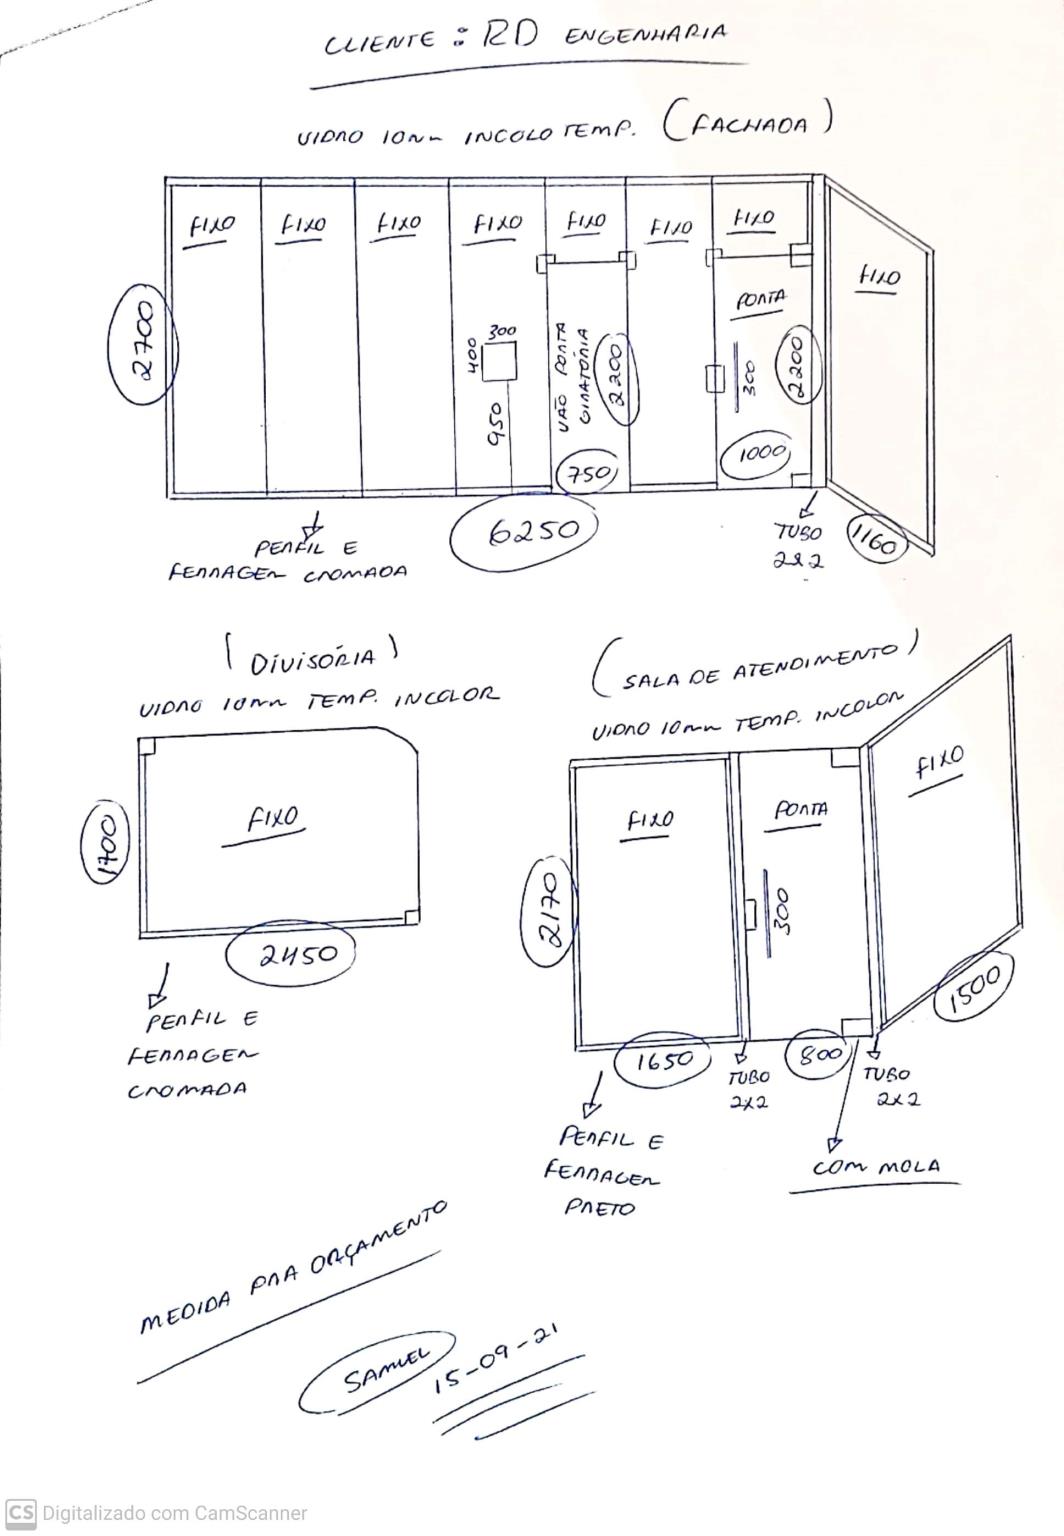 CLIENTE : RD ENGENHARIA
VIDRO 10mm INCOLO TEMP. (FACHADA)
FIXO FIXO FIXO FIXO FIXO FIXO FIXO
FIXO
PORTA
2700
300
400
950
VÃO PORTA
GIRATÓRIA
2200
300
2200
750
1000
6250
TUBO
2x2
1160
PERFIL E
FERRAGEM CROMADA
(DIVISÓRIA)
VIDRO 10mm TEMP. INCOLOR
FIXO
1700
2450
PERFIL E
FERRAGEM
CROMADA
(SALA DE ATENDIMENTO)
VIDRO 10mm TEMP. INCOLOR
FIXO
PORTA
FIXO
2170
300
1650
800
1500
TUBO
2x2
TUBO
2x2
PERFIL E
FERRAGEM
PRETO
COM MOLA
MEDIDA PRA ORÇAMENTO
SAMUEL
15-09-21
CS Digitalizado com CamScanner